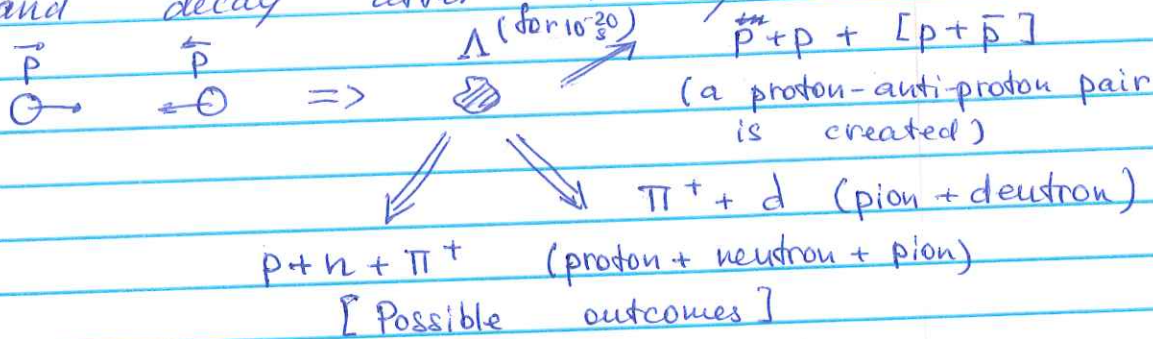 and decay
Λ (for 10⁻²⁰ s) p + p + [p + p̄]
p⃗ p⃖ => (a proton-anti-proton pair
is created)
π⁺ + d (pion + deutron)
p + n + π⁺ (proton + neutron + pion)
[Possible outcomes]